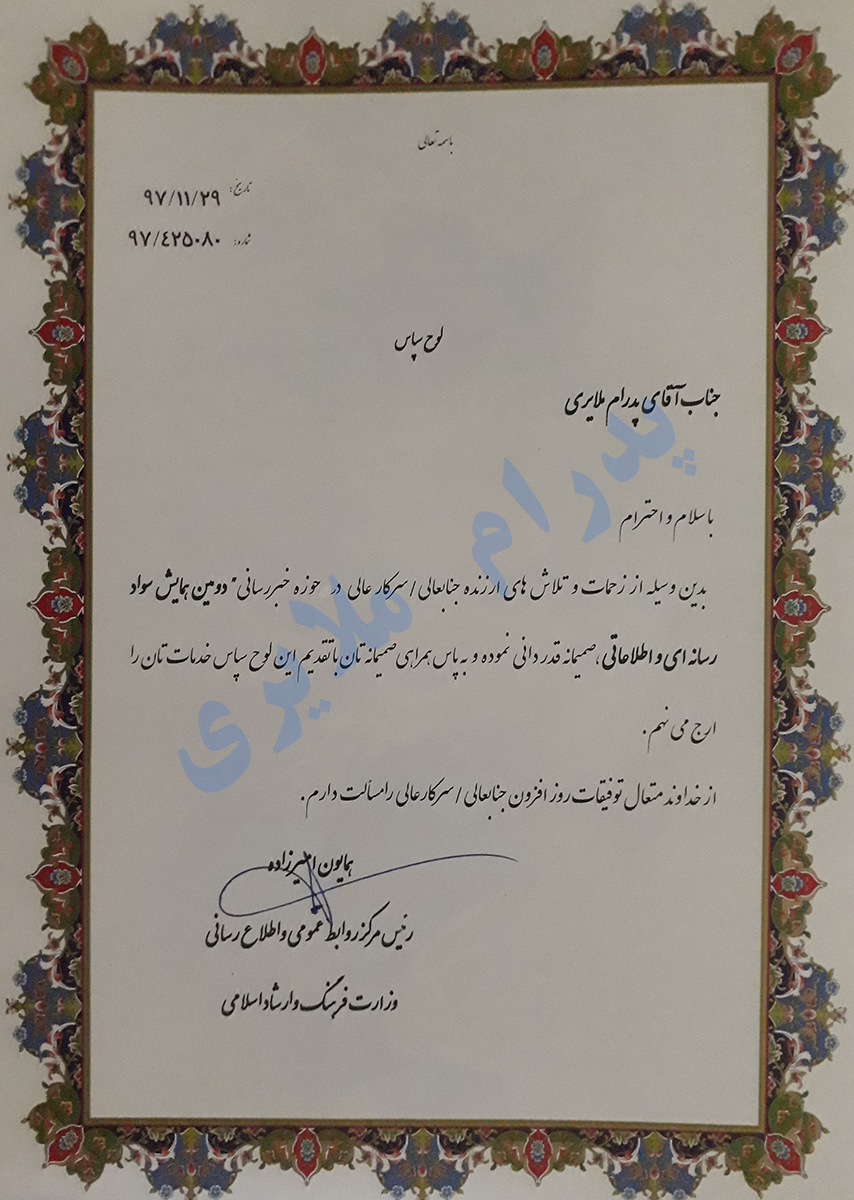 باسمه تعالی
تاریخ: ۹۷/۱۱/۲۹
شماره: ۹۷/۴۲۵۰۸۰
لوح سپاس
جناب آقای پدرام ملایری
با سلام و احترام
بدین وسیله از زحمات و تلاش های ارزنده جنابعالی / سرکار عالی در حوزه خبررسانی " دومین همایش سواد
رسانه ای و اطلاعاتی ، صمیمانه قدردانی نموده و به پاس همراهی صمیمانه تان با تقدیم این لوح سپاس خدمات تان را
ارج می نهم.
از خداوند متعال توفیقات روز افزون جنابعالی / سرکارعالی را مسألت دارم.
همایون امیرزاده
رئیس مرکز روابط عمومی و اطلاع رسانی
وزارت فرهنگ و ارشاد اسلامی
پدرام ملایری